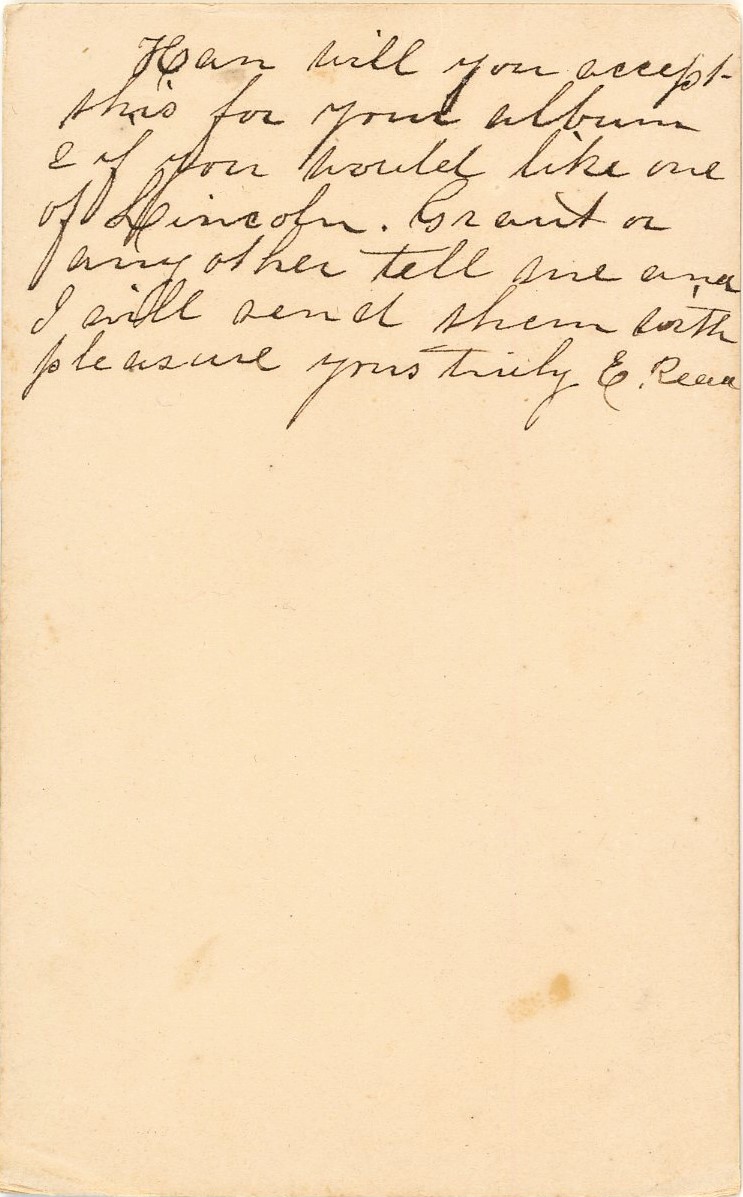 Han will you accept
this for your album
& if you would like one
of Lincoln. Grant or
any other tell me and
I will send them with
pleasure yours truly E. Read